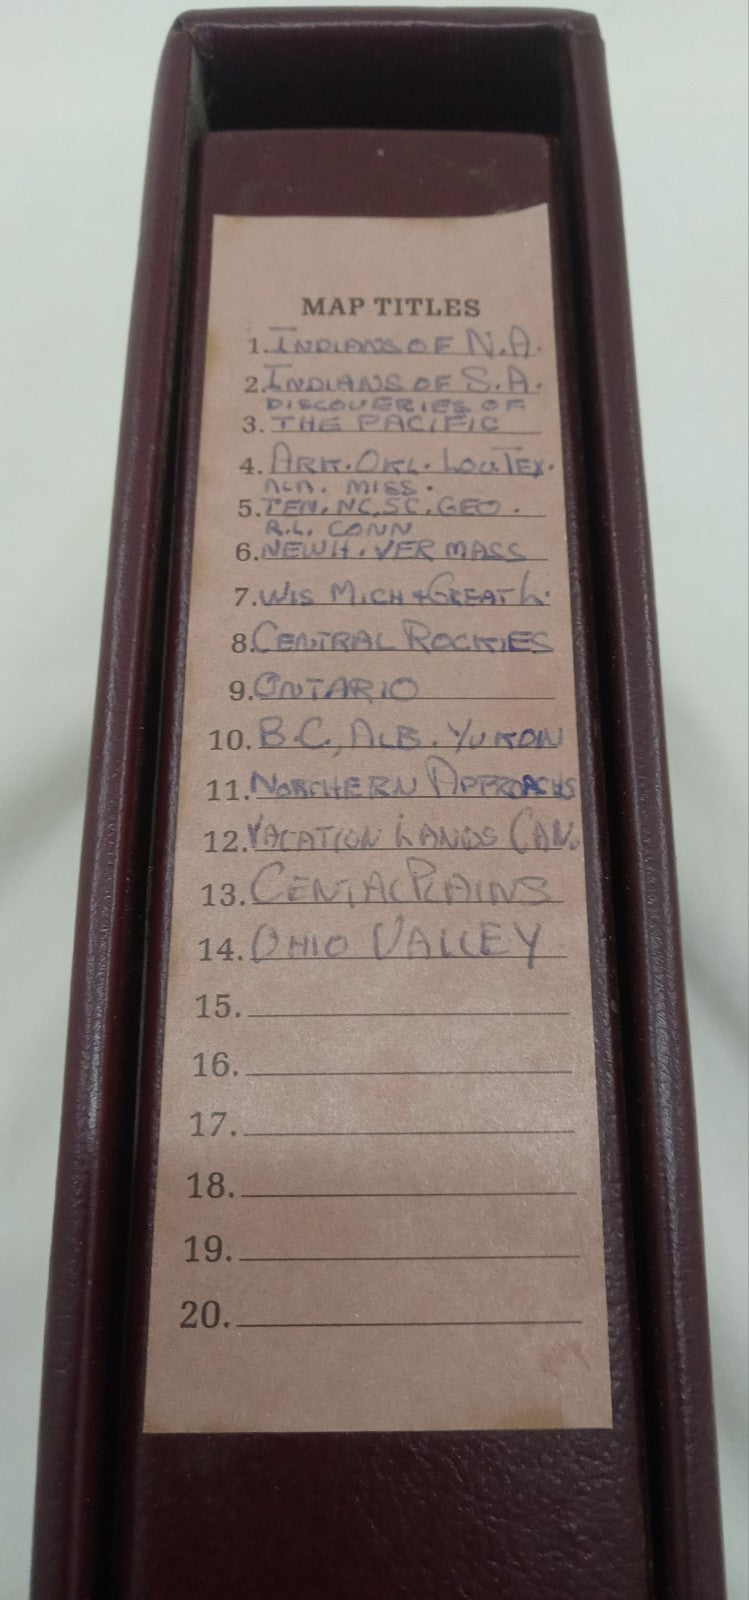 MAP TITLES
1. INDIANS OF N.A.
2. INDIANS OF S.A.
DISCOVERIES OF
3. THE PACIFIC
4. ARK. OKL. LOU TEX.
ALA. MISS.
5. TEN, NC, SC, GEO.
R.I. CONN
6. NEW H. VER MASS
7. WIS MICH + GREAT L.
8. CENTRAL ROCKIES
9. ONTARIO
10. B.C, ALB. YUKON
11. NORTHERN APPROACHS
12. VACATION LANDS CAN.
13. CENTAL PLAINS
14. OHIO VALLEY
15.
16.
17.
18.
19.
20.